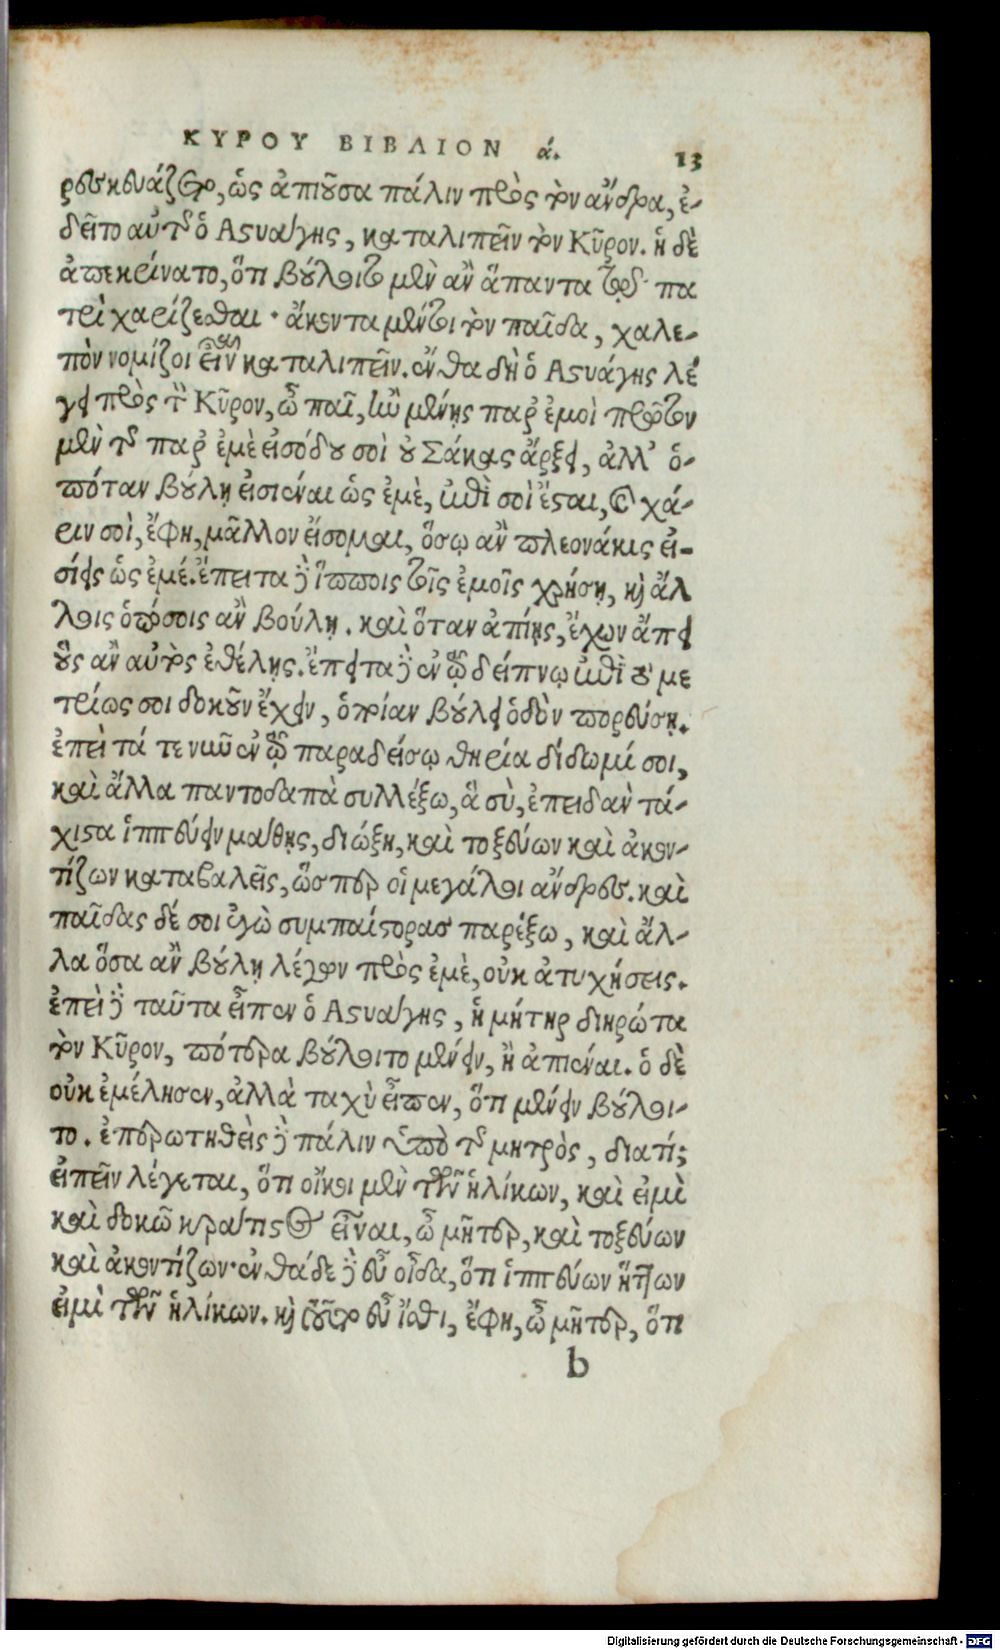 ΚΥΡΟΥ ΒΙΒΛΙΟΝ ά. 13
ρεσκευάζετο, ὡς ἀπιοῦσα πάλιν πρὸς τὸν ἄνδρα, ἐ-
δεῖτο αὐτῆς ὁ Ἀστυάγης, καταλιπεῖν τὸν Κῦρον. ἡ δὲ
ἀπεκρίνατο, ὅτι βούλοιτο μὲν ἂν ἅπαντα τῷ πα
τρὶ χαρίζεσθαι· ἄκοντα μέντοι τὸν παῖδα, χαλε-
πὸν νομίζοι εἶναι καταλιπεῖν. ἔνθα δὴ ὁ Ἀστυάγης λέ
γει πρὸς τὸν Κῦρον, ὦ παῖ, ἢν μένῃς παρ' ἐμοὶ πρῶτον
μὲν τῆς παρ' ἐμὲ εἰσόδου σοὶ οὐ Σάκας ἄρξει, ἀλλ' ὁ-
πόταν βούλῃ εἰσιέναι ὡς ἐμὲ, ἐπὶ σοὶ ἔσται, καὶ χά-
ριν σοὶ, ἔφη, μᾶλλον εἴσομαι, ὅσῳ ἂν πλεονάκις εἰ-
σίῃς ὡς ἐμέ. ἔπειτα δὲ ἵπποις τοῖς ἐμοῖς χρήσῃ, καὶ ἄλ
λοις ὁπόσοις ἂν βούλῃ. καὶ ὅταν ἀπίῃς, ἔχων ἄπει
οὓς ἂν αὐτὸς ἐθέλῃς. ἔπειτα δὲ ἐν τῷ δείπνῳ ἐπὶ τὸ με
τρίως σοι δοκοῦν ἔχειν, ὁποίαν βούλει ὁδὸν πορεύσῃ.
ἐπεὶ τά τε νῦν ἐν τῷ παραδείσῳ θηρία δίδωμί σοι,
καὶ ἄλλα παντοδαπὰ συλλέξω, ἃ σὺ, ἐπειδὰν τά-
χιστα ἱππεύειν μάθῃς, διώξῃ, καὶ τοξεύων καὶ ἀκον-
τίζων καταβαλεῖς, ὥσπερ οἱ μεγάλοι ἄνδρες. καὶ
παῖδας δέ σοι ἐγὼ συμπαίστορας παρέξω, καὶ ἄλ-
λα ὅσα ἂν βούλῃ λέγων πρὸς ἐμὲ, οὐκ ἀτυχήσεις.
ἐπεὶ δὲ ταῦτα εἶπεν ὁ Ἀστυάγης, ἡ μήτηρ διηρώτα
τὸν Κῦρον, πότερα βούλοιτο μένειν, ἢ ἀπιέναι. ὁ δὲ
οὐκ ἐμέλησεν, ἀλλὰ ταχὺ εἶπεν, ὅτι μένειν βούλοι-
το. ἐπερωτηθεὶς δὲ πάλιν ὑπὸ τῆς μητρὸς, διατί;
εἰπεῖν λέγεται, ὅτι οἴκοι μὲν τῶν ἡλίκων, καὶ εἰμὶ
καὶ δοκῶ κράτιστος εἶναι, ὦ μῆτερ, καὶ τοξεύων
καὶ ἀκοντίζων· ἐνθάδε δὲ εὖ οἶδα, ὅτι ἱππεύων ἥττων
εἰμὶ τῶν ἡλίκων. καὶ τοῦτο εὖ ἴσθι, ἔφη, ὦ μῆτερ, ὅτι
b
Digitalisierung gefördert durch die Deutsche Forschungsgemeinschaft - DFG